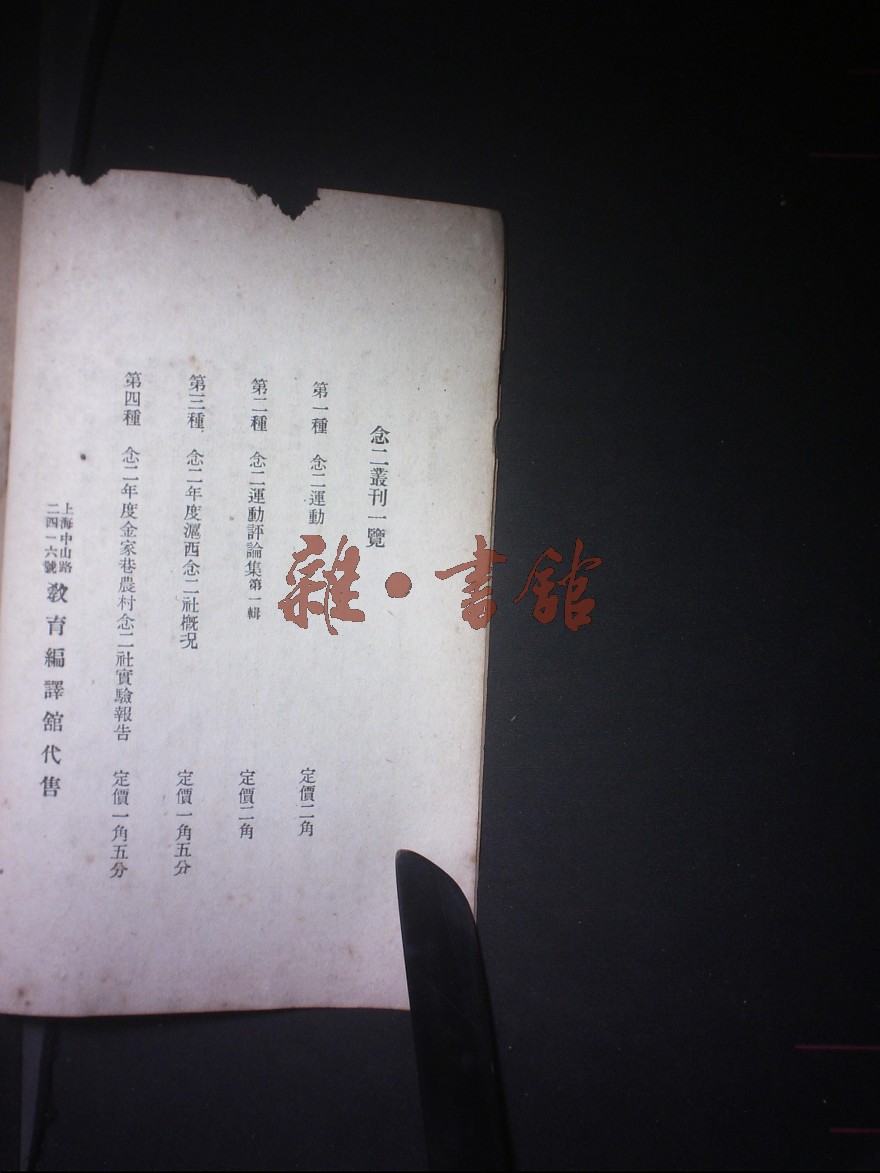 念二叢刊一覽
第一種 念二運動 定價二角
第二種 念二運動評論集第一輯 定價二角
第三種 念二年度滬西念二社概况 定價一角五分
第四種 念二年度金家巷農村念二社實驗報告 定價一角五分
上海中山路
二四一六號
教育編譯館代售
雜·書館